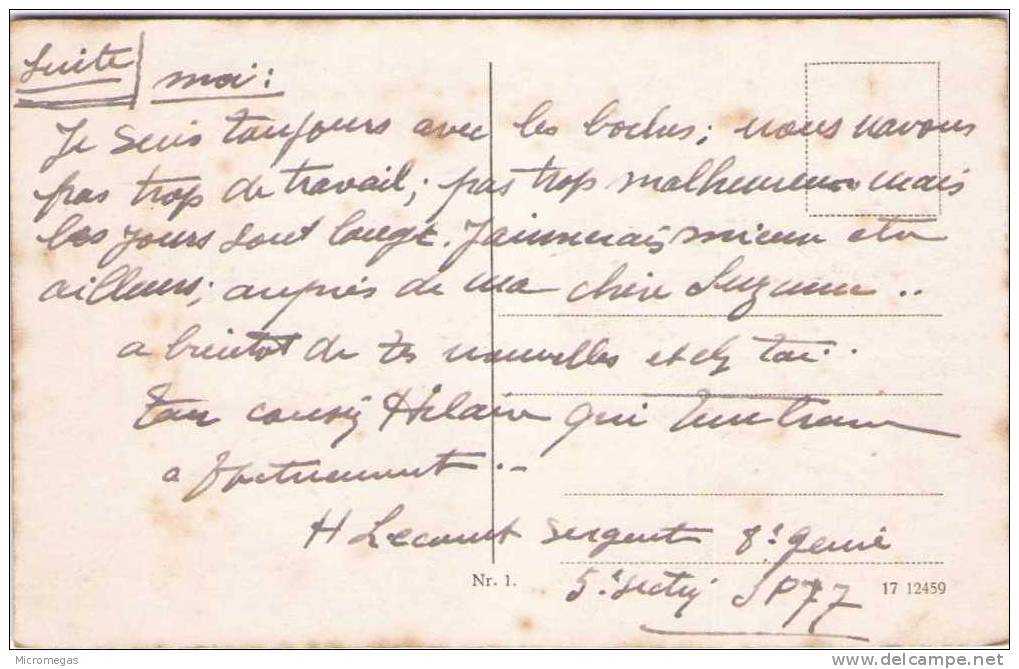 Suite
moi :
Je suis toujours avec les boches ; nous navons
pas trop de travail ; pas trop malheureux mais
les jours sont longt. J'aimerais mieux etre
ailleurs ; auprès de ma chère Suzanne ..
a bientot de tes nouvelles et chez toi.
ton cousin Hilaire qui
a .-
H Lecourt sergent 8e genie
5e section SP 77
Nr. 1.
17 12459
Micromegas
www.delcampe.net